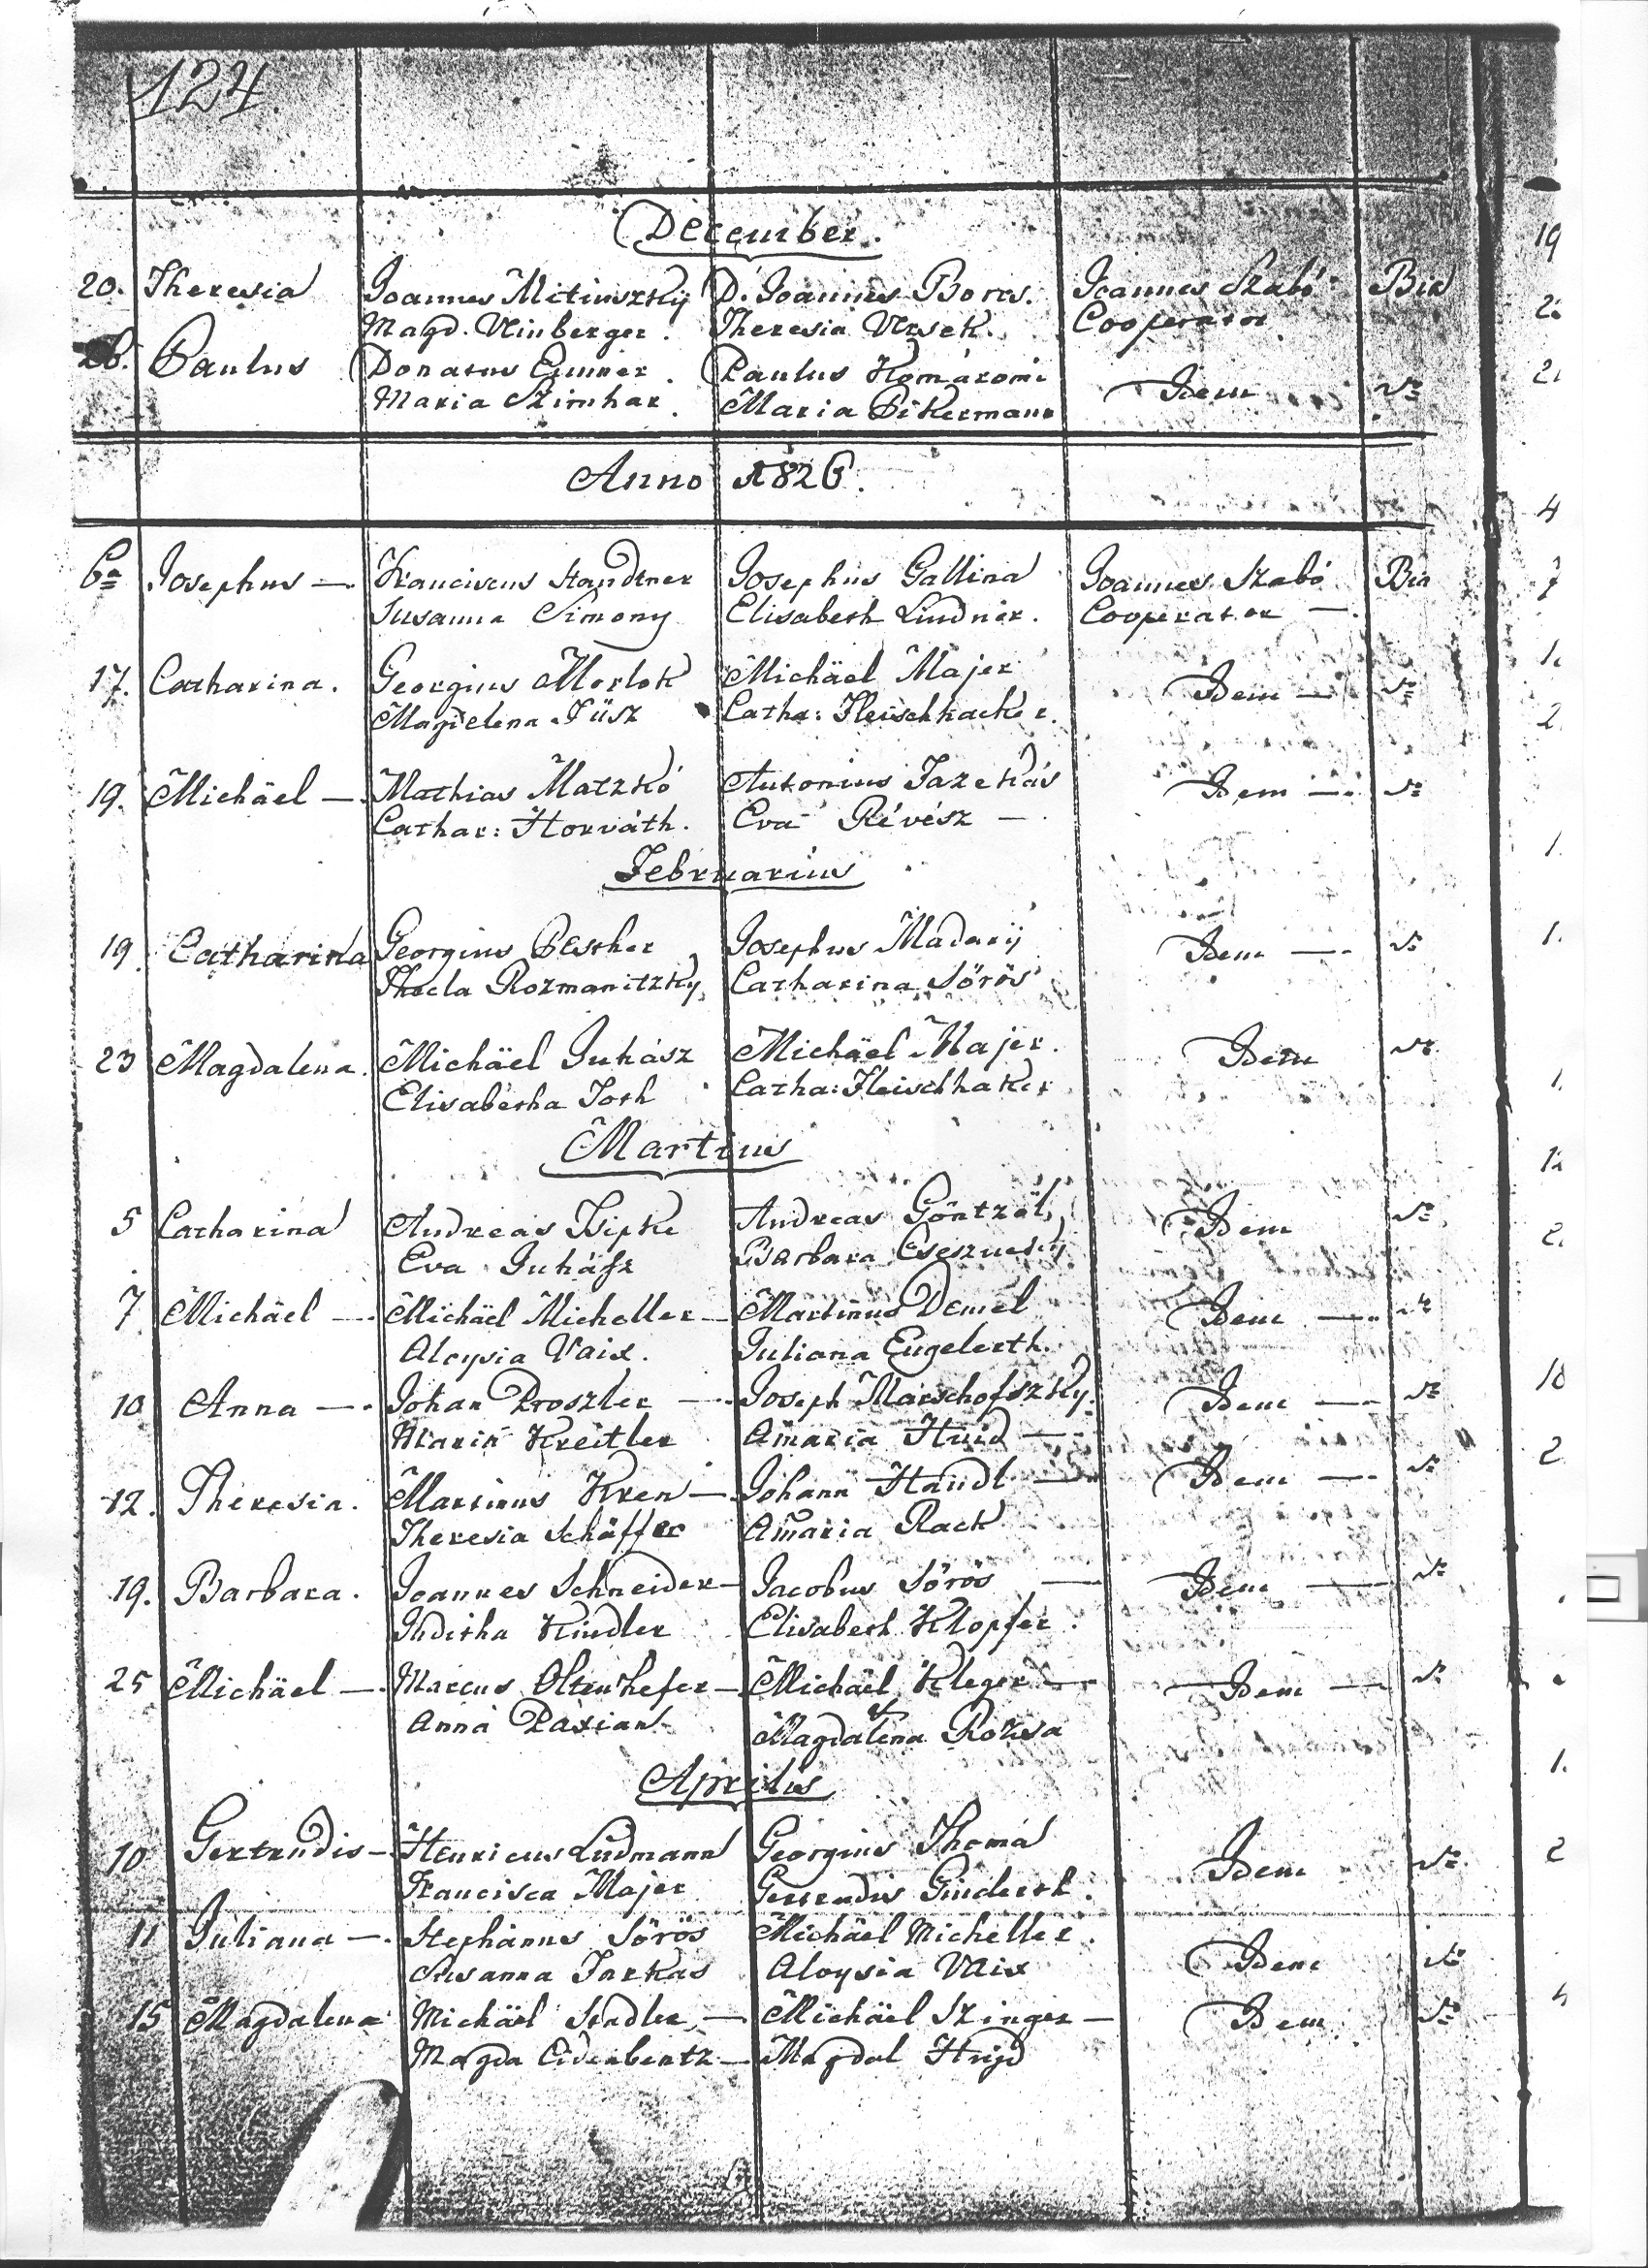 124
December.
20. Theresia Joannes Mitinszkÿ D. Joannes Boros. Joannes Szabó Bia
Magd. Vinberger. Theresia Versek. Cooperator
Paulus Donatus Paulus Komáromi Idem
Maria Szimhar. Maria Pikermann
Anno 1826.
6a Josephus — Franciscus Standtner Josephus Gallina Joannes Szabó Bia
Susanna Simony Elisabeth Lindner. Cooperator —
17. Catharina. Georgius Morlok Michäel Majer Idem —
Magdelena Füsz Catha: Fleischhacker.
19. Michäel — Mathias Matzkó Antonius Fazekás Idem —
Cathar: Horváth. Eva Révész —
Februarius
19 Catharina Georgius Pesther Josephus Madarij Idem —
Thecla Rozmanitzky Catharina Sörös
23 Magdalena. Michäel Juhász Michäel Majer. Idem
Elisabetha Toth Catha: Fleischhaker
Martius
5 Catharina Andreas Sipke Andreas Göntzöl Idem
Eva Juhász Barbara
7 Michäel — Michäel Micheller — Martinus Demel Idem —
Aloysia Vaix. Juliana Engelerth.
10 Anna — Johan Proszler — Joseph Marschofszky. Idem —
Maria Kreitler Amaria Huid —
12. Theresia. Martinus Kren — Johann Handl — Idem —
Theresia Schäffer Amaria Rack
19. Barbara. Joannes Schneider — Jacobus Sörös — Idem —
Juditha Kindler Elisabeth Klopfer.
25 Michäel — Marcus Oltenhefer — Michäel Kleger — Idem —
Anna Paxian Magdalena Rozsa
Aprilus
10 Gertrudis — Henricus Ludmann Georgius Thoma Idem
Francisca Majer Gertrudis Ginderth.
11 Juliana — Stephanus Sörös Michäel Micheller. Idem
Susanna Farkas Aloysia Vaix
15 Magdalena Michäel Stadler — Michäel Szinger — Idem
Magda Eidenbentz — Magdal Hujd